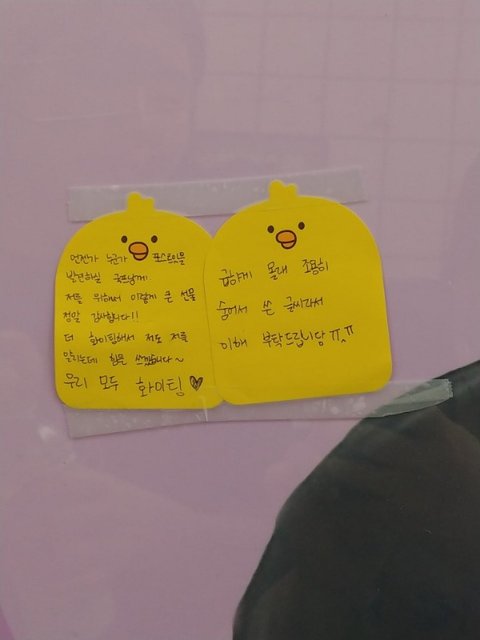 언젠가 누군가 포스트잇을
발견하실 국프님께
저를 위해서 이렇게 큰 선물
정말 감사합니다!!
더 화이팅해서 저도 저를
알리는데 힘을 쓰겠습니다~
우리 모두 화이팅♥
급하게 몰래 조용히
숨어서 쓴 글씨라서
이해 부탁드립니당 ㅠ^ㅠ